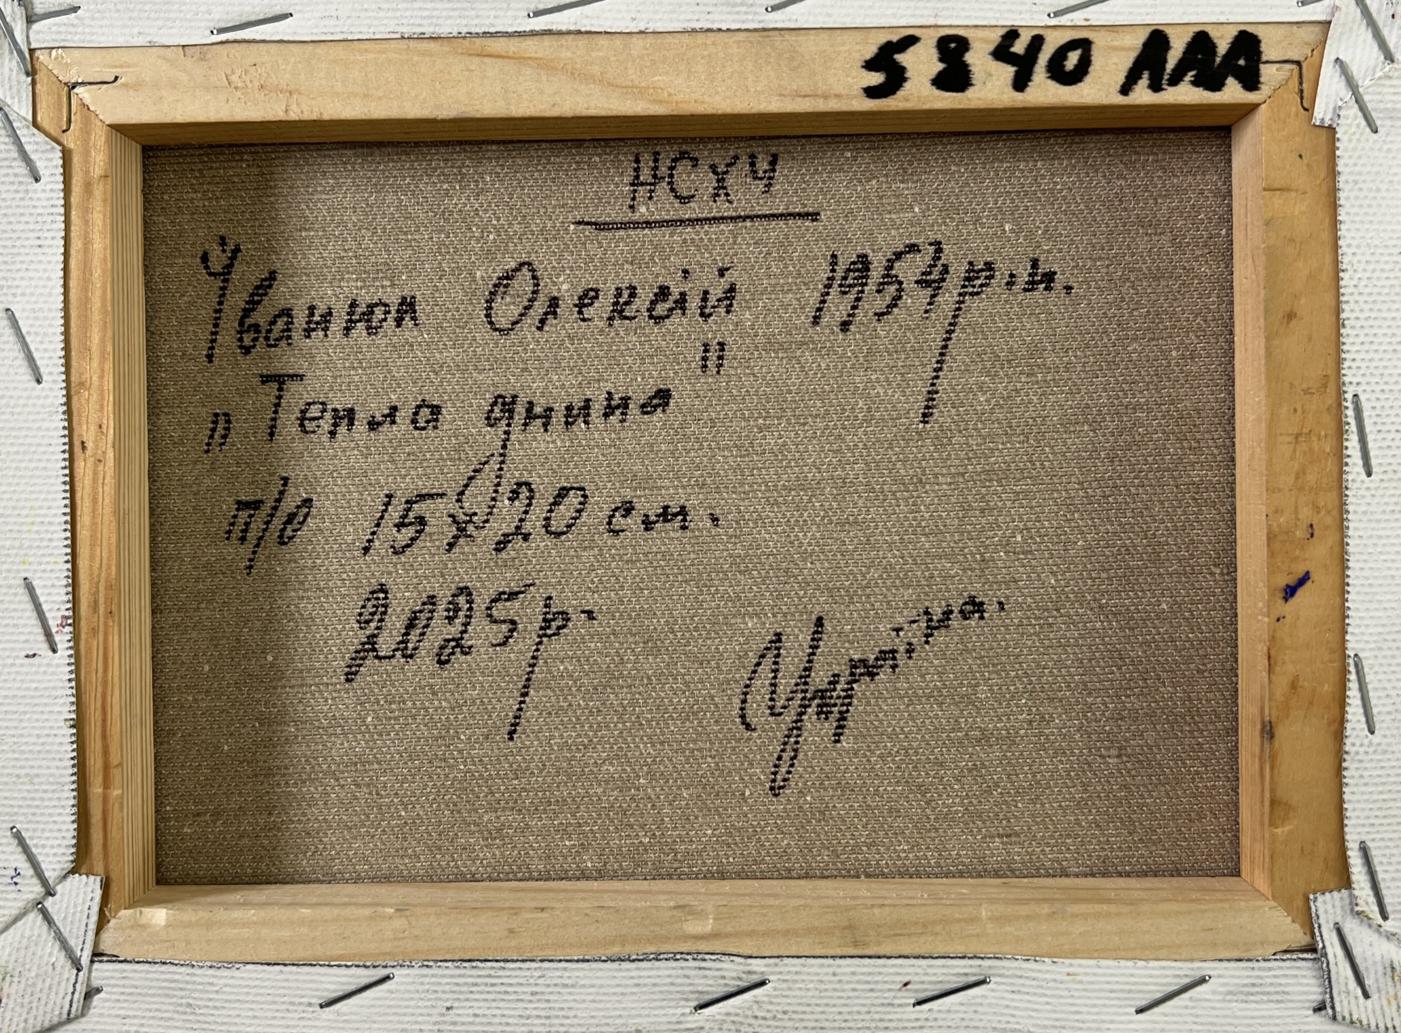 5840 ААА
НСХУ
Іванюк Олексій 1954р.н.
"Тепла днина"
п/о 15х20 см.
2025р.
Україна.